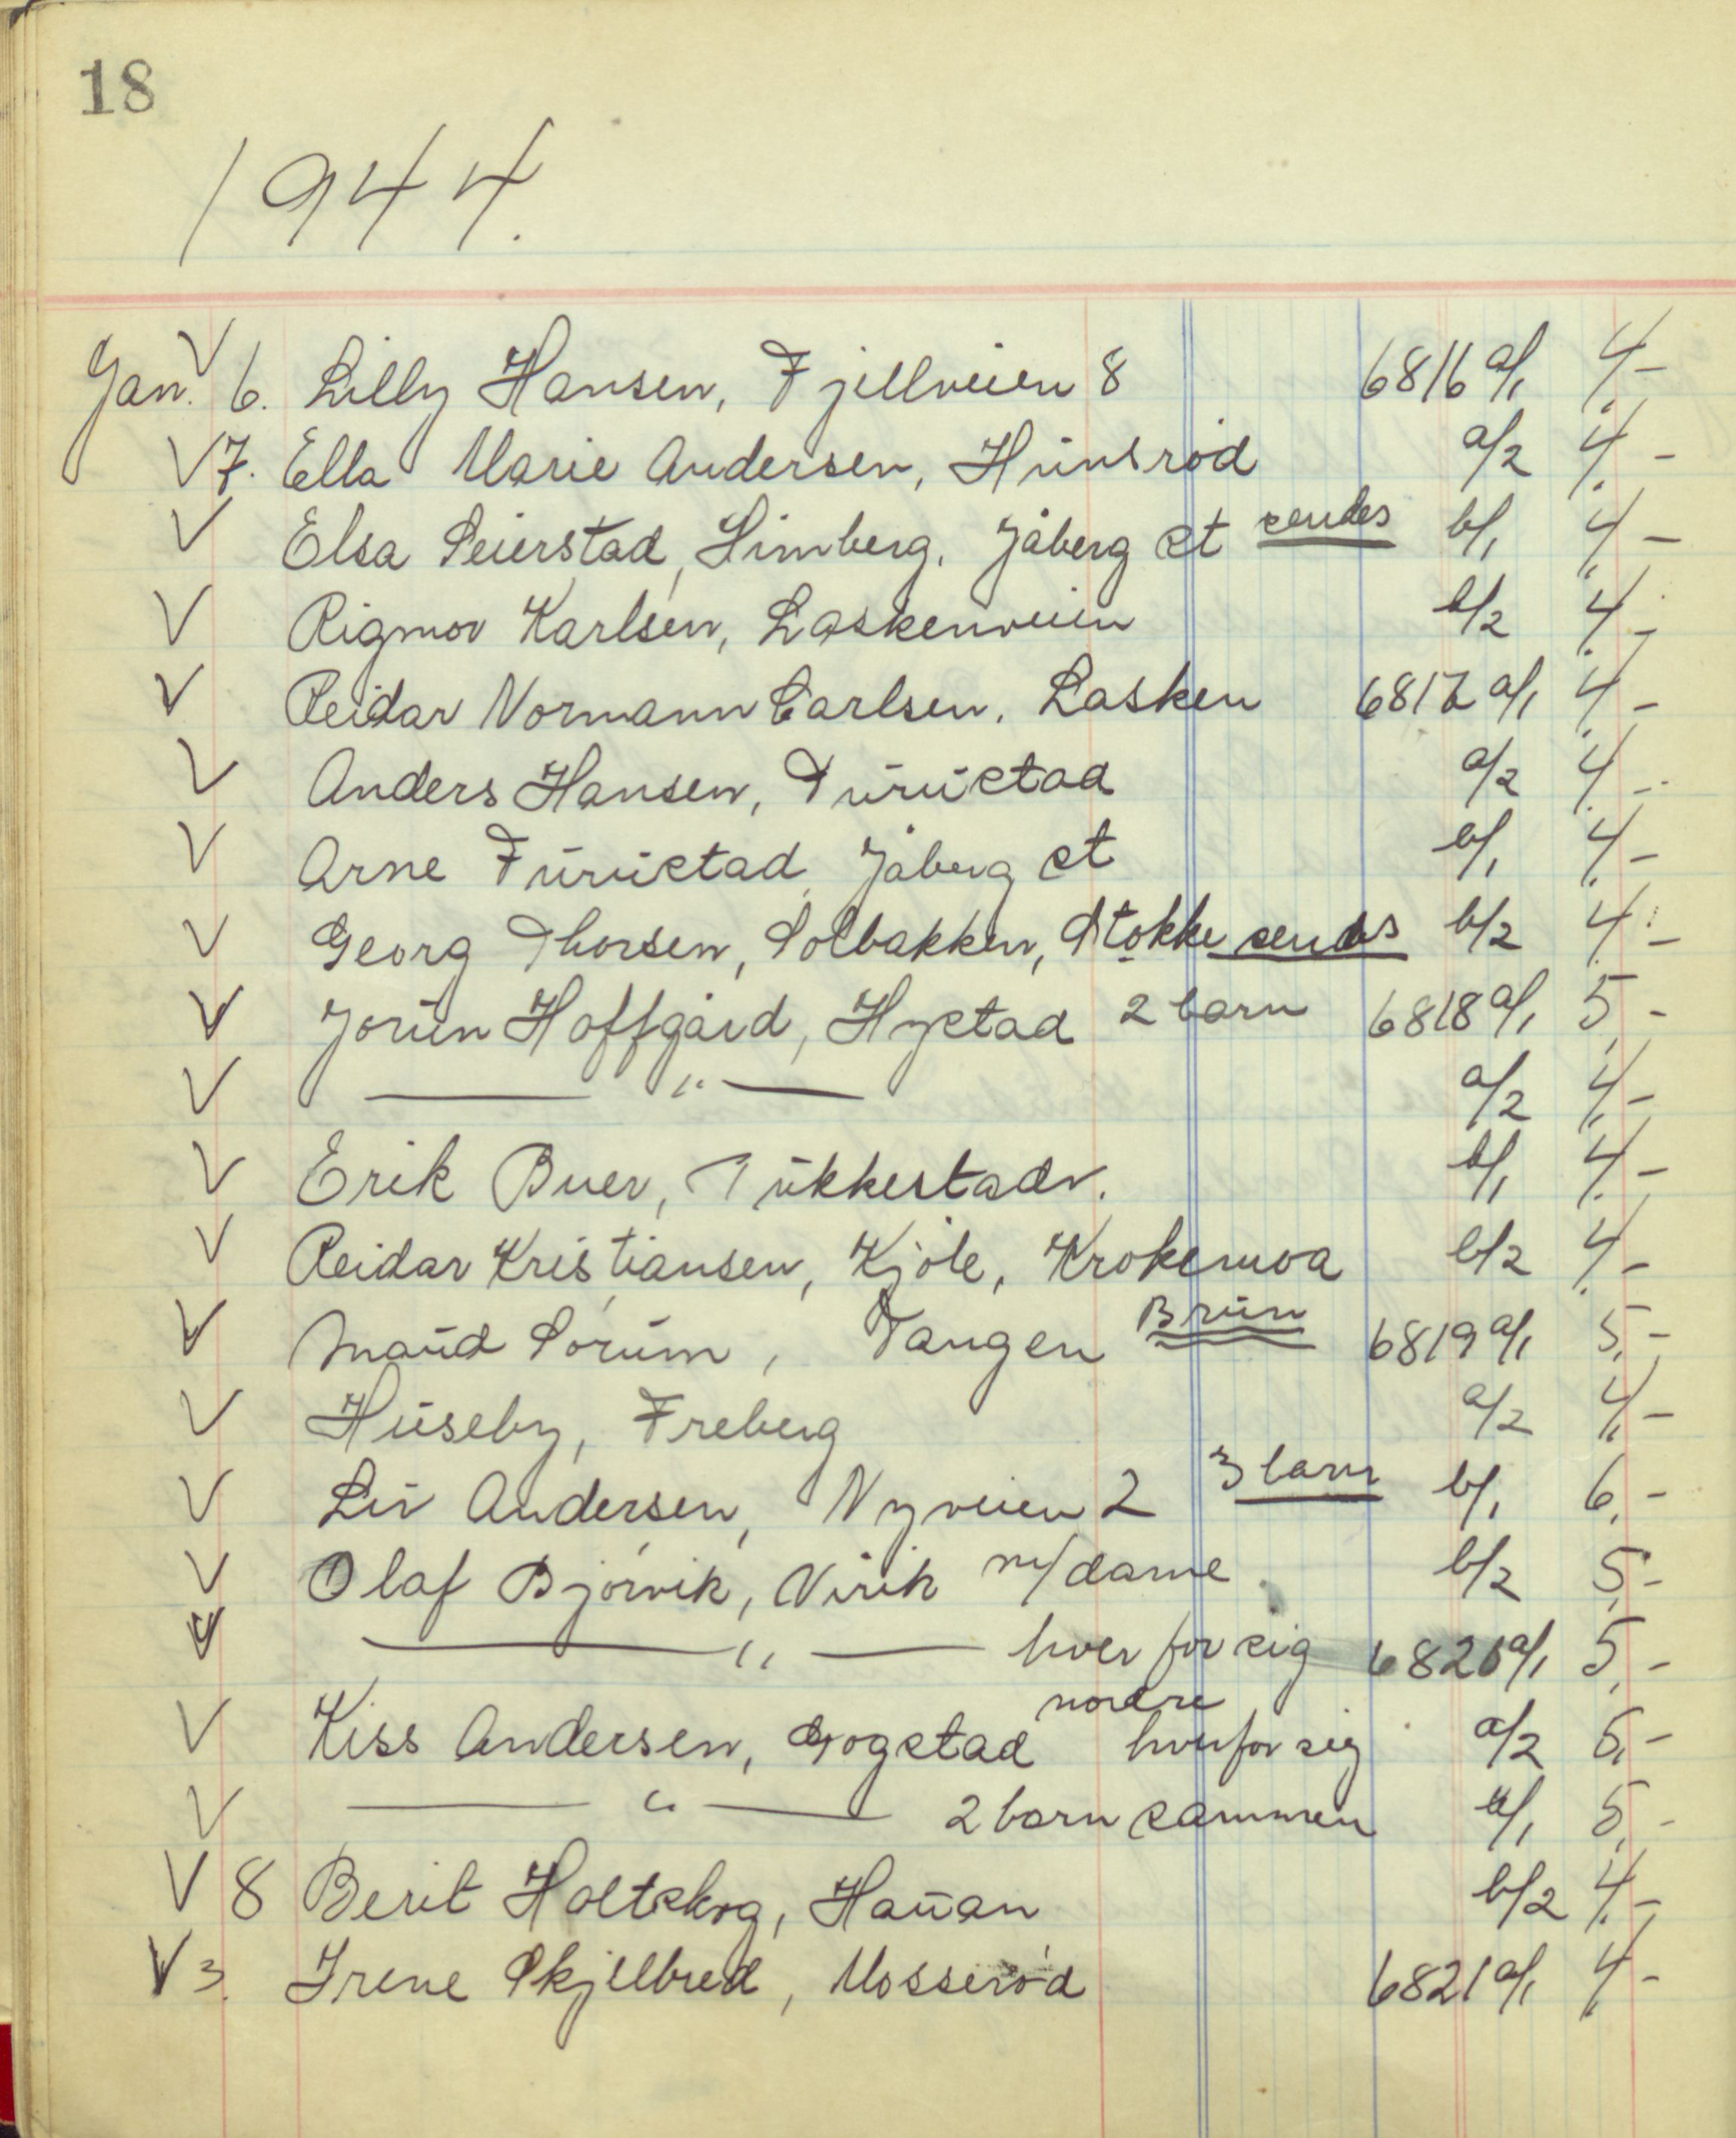 18
1944.
Jan. V 6. Lilly Hansen, Fjellveien 8 6816 a/1 4,-
V 7. Ella Marie Andersen, Hunsrød a/2 4,-
V Elsa Seierstad, Limberg, Jåberg st sendes b/1 4,-
V Rigmor Karlsen, Laskenveien b/2 4,-
V Reidar Normann Carlsen, Lasken 6817 a/1 4,-
V Anders Hansen, Furustad a/2 4,-
V Arne Furustad, Jåberg st b/1 4,-
V Georg Thorsen, Solbakken, Stokke sendes b/2 4,-
V Jorun Hoffgård, Hystad 2 barn 6818 a/1 5,-
V — " — a/2 4,-
V Erik Buer, Pukkestadv. b/1 4,-
V Reidar Kristiansen, Kjøle, Krokemoa b/2 4,-
V Maud Sørum, Tangen Brun 6819 a/1 5,-
V Huseby, Freberg a/2 4,-
V Liv Andersen, Nyveien 2 3 barn b/1 6,-
V Olaf Bjørvik, Virik m/dame b/2 5,-
V — " — hver for sig 6820 a/1 5,-
V Kiss Andersen, Gogstad nordre hver for sig a/2 5,-
V — " — 2 barn sammen b/1 5,-
V 8 Berit Holtskog, Hauan b/2 4,-
V 3. Irene Skjelbred, Mosserød 6821 a/1 4,-